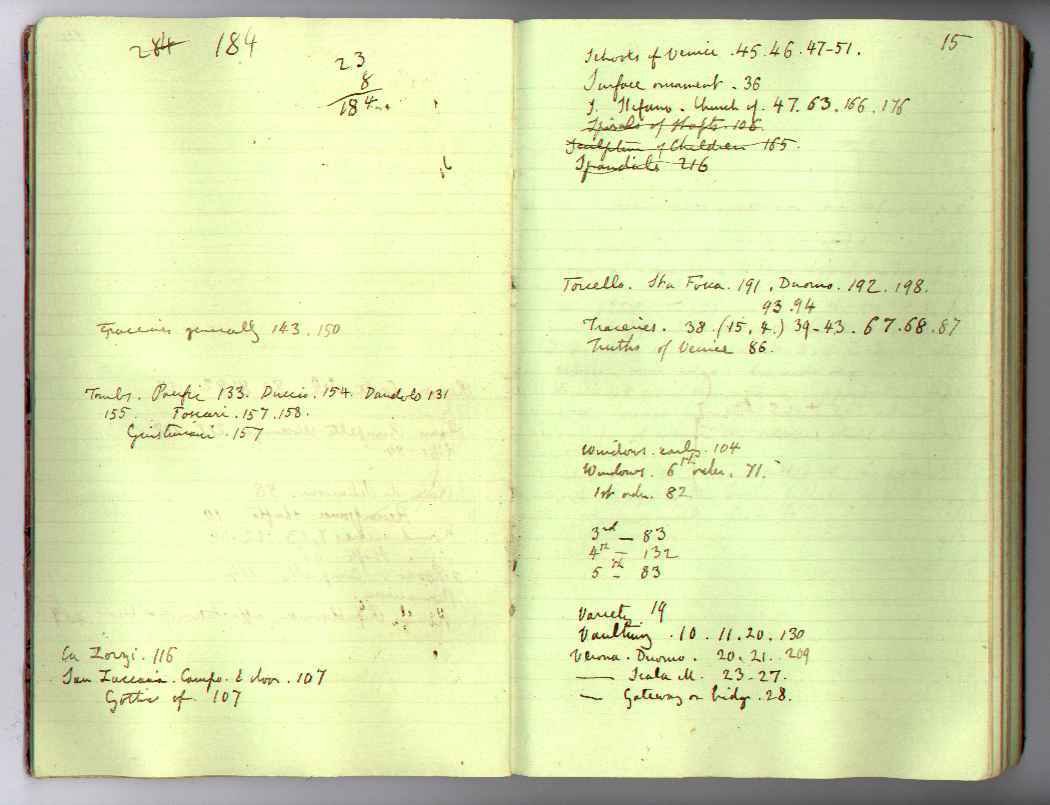 284 184
23
8
184.
Traceries generally 143. 150
Tombs. Pacific 133. Duccio. 154. Dandolo 131
155. Foscari. 157. 158.
Giustiniani. 157
Ca Zorzi. 116
San Zaccaria. Campo. & door. 107
Gothic of. 107
15
Schools of Venice. 45. 46. 47-51.
Surface ornament. 36
S. Stefano. Church of. 47. 63. 166. 176
Spirals of shafts. 106
Sculpture of Children 165.
Spandrils 216
Torcello. Sta Fosca. 191. Duomo. 192. 198.
93. 94
Traceries. 38. (15, 4.) 39-43. 67. 68. 87
Truths of Venice 86.
Windows. early. 104
Windows. 6th order. 71.
1st order. 82
3rd — 83
4th — 132
5th — 83
Variety. 19
Vaulting. 10. 11. 20. 130
Verona. Duomo. 20. 21. 209
— Scala M. 23-27.
— Gateway on bridge. 28.